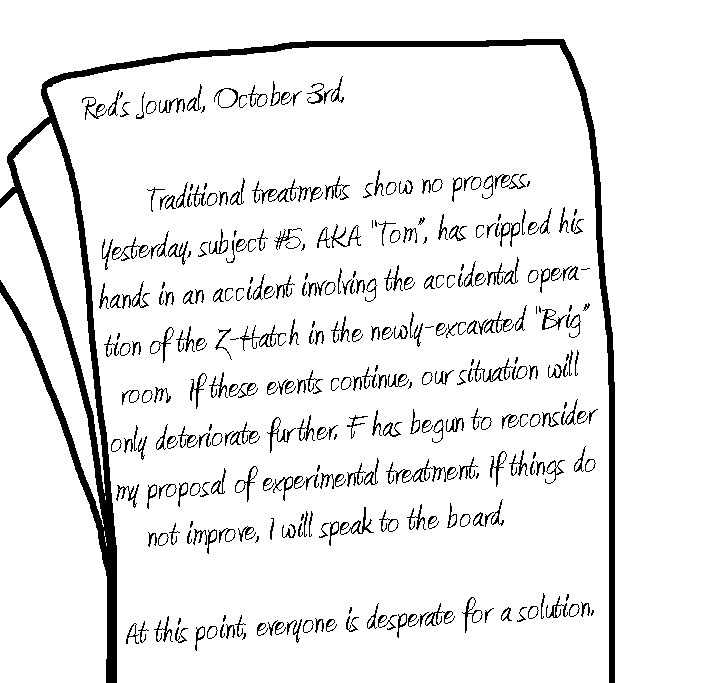 Red's Journal, October 3rd,
Traditional treatments show no progress.
Yesterday, subject #5, AKA "Tom", has crippled his
hands in an accident involving the accidental opera-
tion of the Z-Hatch in the newly-excavated "Brig"
room. If these events continue, our situation will
only deteriorate further. F has begun to reconsider
my proposal of experimental treatment. If things do
not improve, I will speak to the board.
At this point, everyone is desperate for a solution.